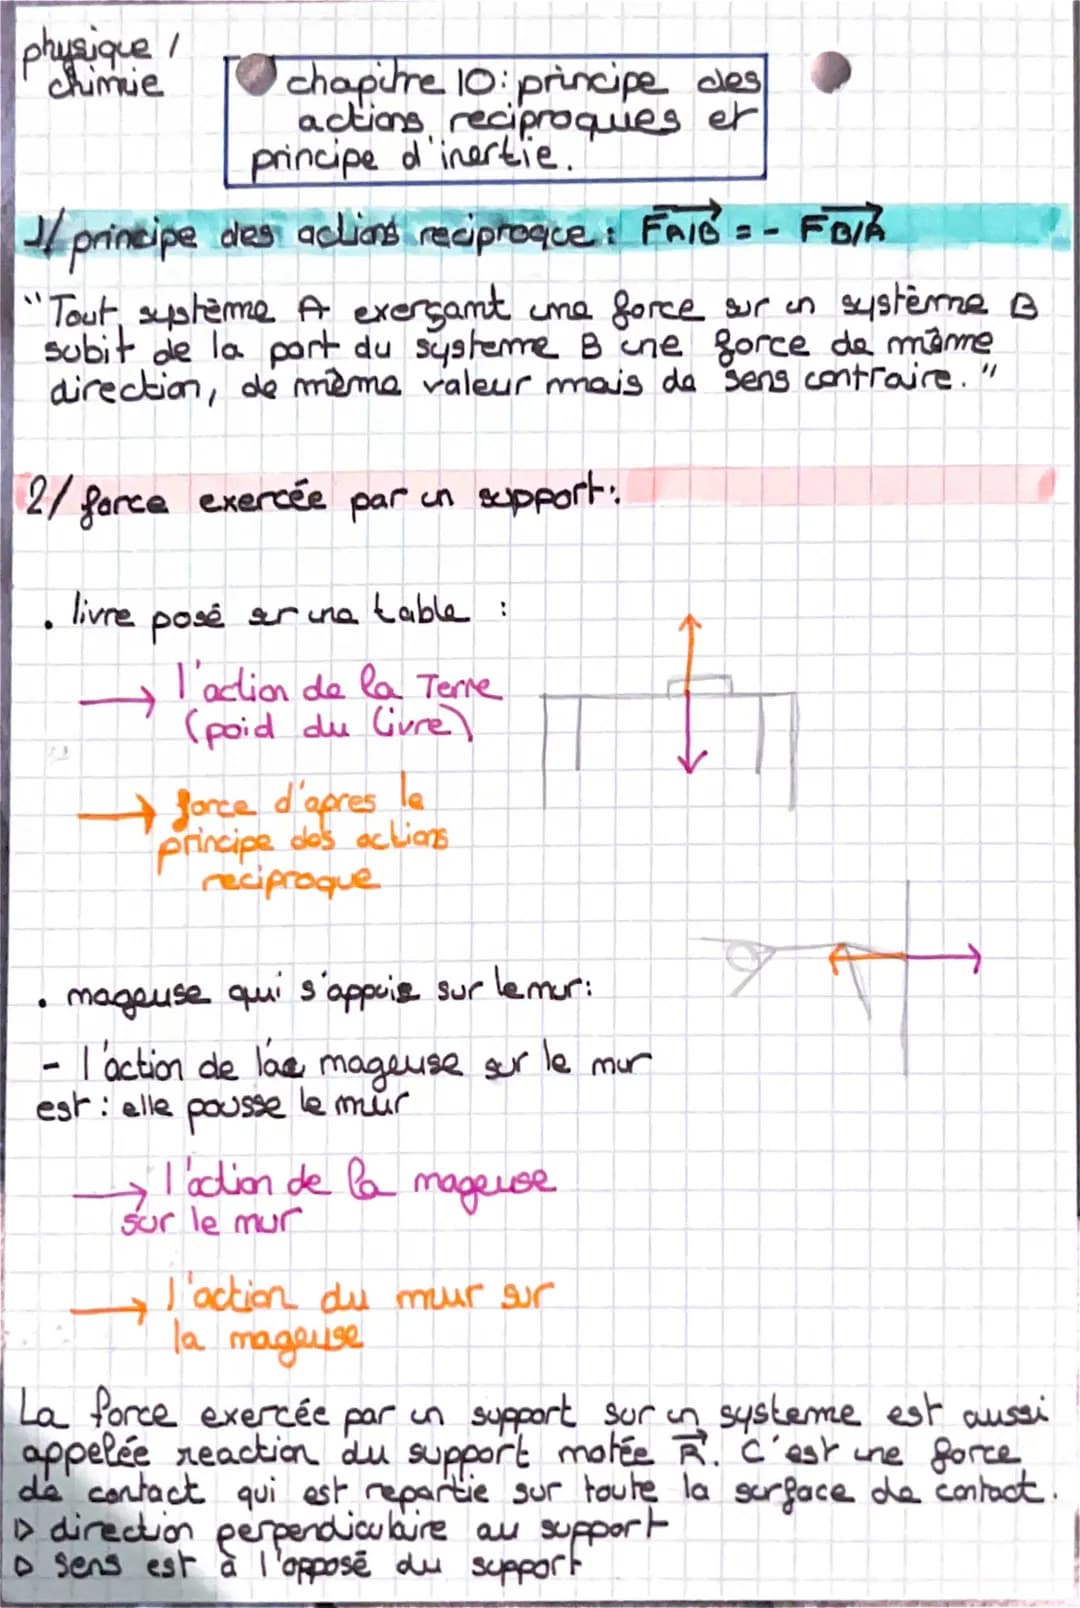 physique /
chimie
chapitre 10: principe des
actions reciproques et
principe d'inertie.
1/ principe des actions reciproque : FA/B = - FB/A
"Tout système A exerçant une force sur un système B
subit de la part du systeme B une force de même
direction, de même valeur mais de sens contraire."
2/ force exercée par un support:
. livre posé sur une table :
→ l'action de la Terre
(poid du livre)
→ force d'apres le
principe des actions
reciproque
. nageuse qui s'appuie sur le mur:
- l'action de la nageuse sur le mur
est : elle pousse le mur
→ l'action de la nageuse
sur le mur
→ l'action du mur sur
la nageuse
La force exercée par un support sur un systeme est aussi
appelée reaction du support notée R. C'est une force
de contact qui est repartie sur toute la surface de contact.
▷ direction perpendiculaire au support
▷ sens est à l'opposé du support